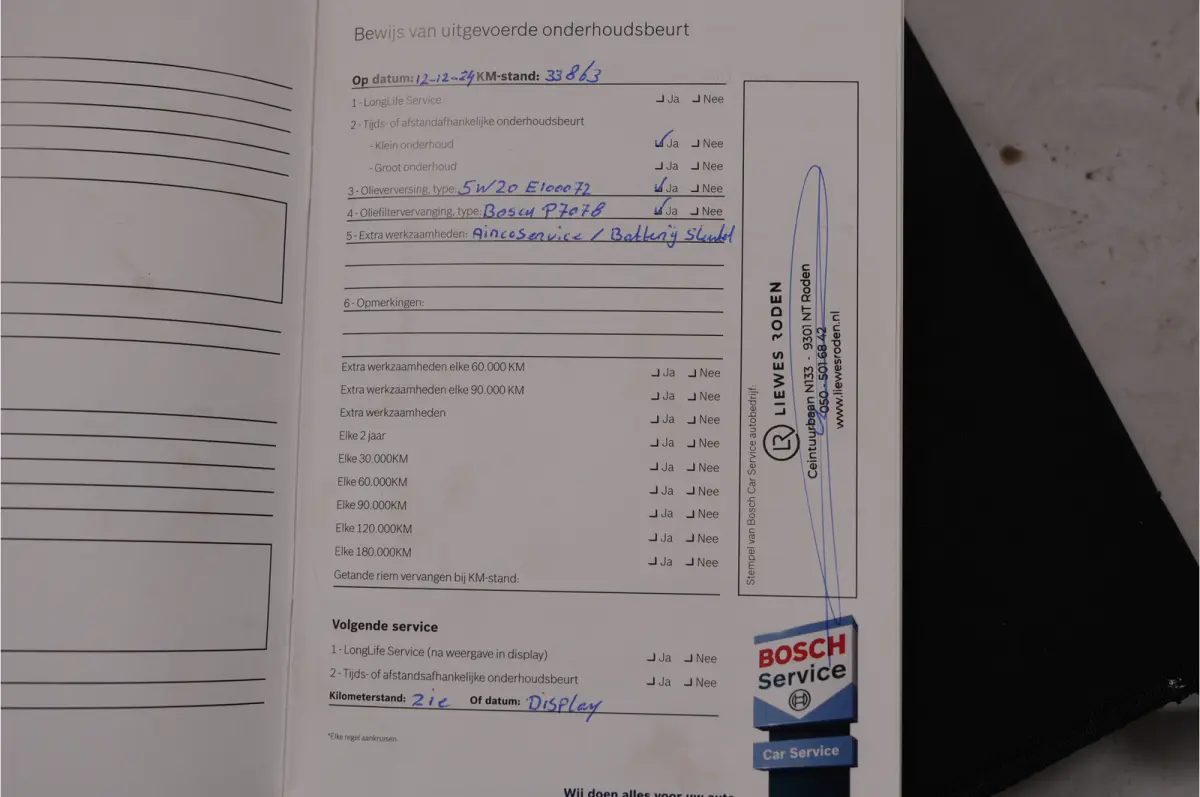 Bewijs van uitgevoerde onderhoudsbeurt
Op datum: 12-12-24 KM-stand: 33863
1 - LongLife Service Ja Nee
2 - Tijds- of afstandafhankelijke onderhoudsbeurt
- Klein onderhoud Ja Nee
- Groot onderhoud Ja Nee
3 - Olieverversing, type: 5W20 E100072 Ja Nee
4 - Oliefiltervervanging, type: Bosch P7078 Ja Nee
5 - Extra werkzaamheden: Aircoservice / Batterij Sleutel
6 - Opmerkingen:
Extra werkzaamheden elke 60.000 KM Ja Nee
Extra werkzaamheden elke 90.000 KM Ja Nee
Extra werkzaamheden Ja Nee
Elke 2 jaar Ja Nee
Elke 30.000KM Ja Nee
Elke 60.000KM Ja Nee
Elke 90.000KM Ja Nee
Elke 120.000KM Ja Nee
Elke 180.000KM Ja Nee
Getande riem vervangen bij KM-stand:
Volgende service
1 - LongLife Service (na weergave in display) Ja Nee
2 - Tijds- of afstandsafhankelijke onderhoudsbeurt Ja Nee
Kilometerstand: Zie Of datum: Display
*Elke regel aankruisen.
Stempel van Bosch Car Service autobedrijf:
LR LIEWES RODEN
Ceintuurbaan N133 - 9301 NT Roden
050 - 501 68 42
www.liewesroden.nl
BOSCH
Service
Car Service
Wij doen alles voor uw auto